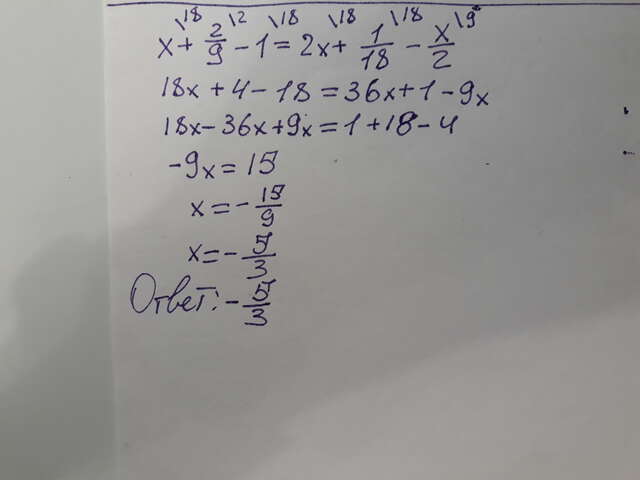 x\18 + 2/9\2 - 1\18 = 2x\18 + 1/18\18 - x/2\9
18x + 4 - 18 = 36x + 1 - 9x
18x - 36x + 9x = 1 + 18 - 4
-9x = 15
x = - 15/9
x = - 5/3
Ответ: - 5/3